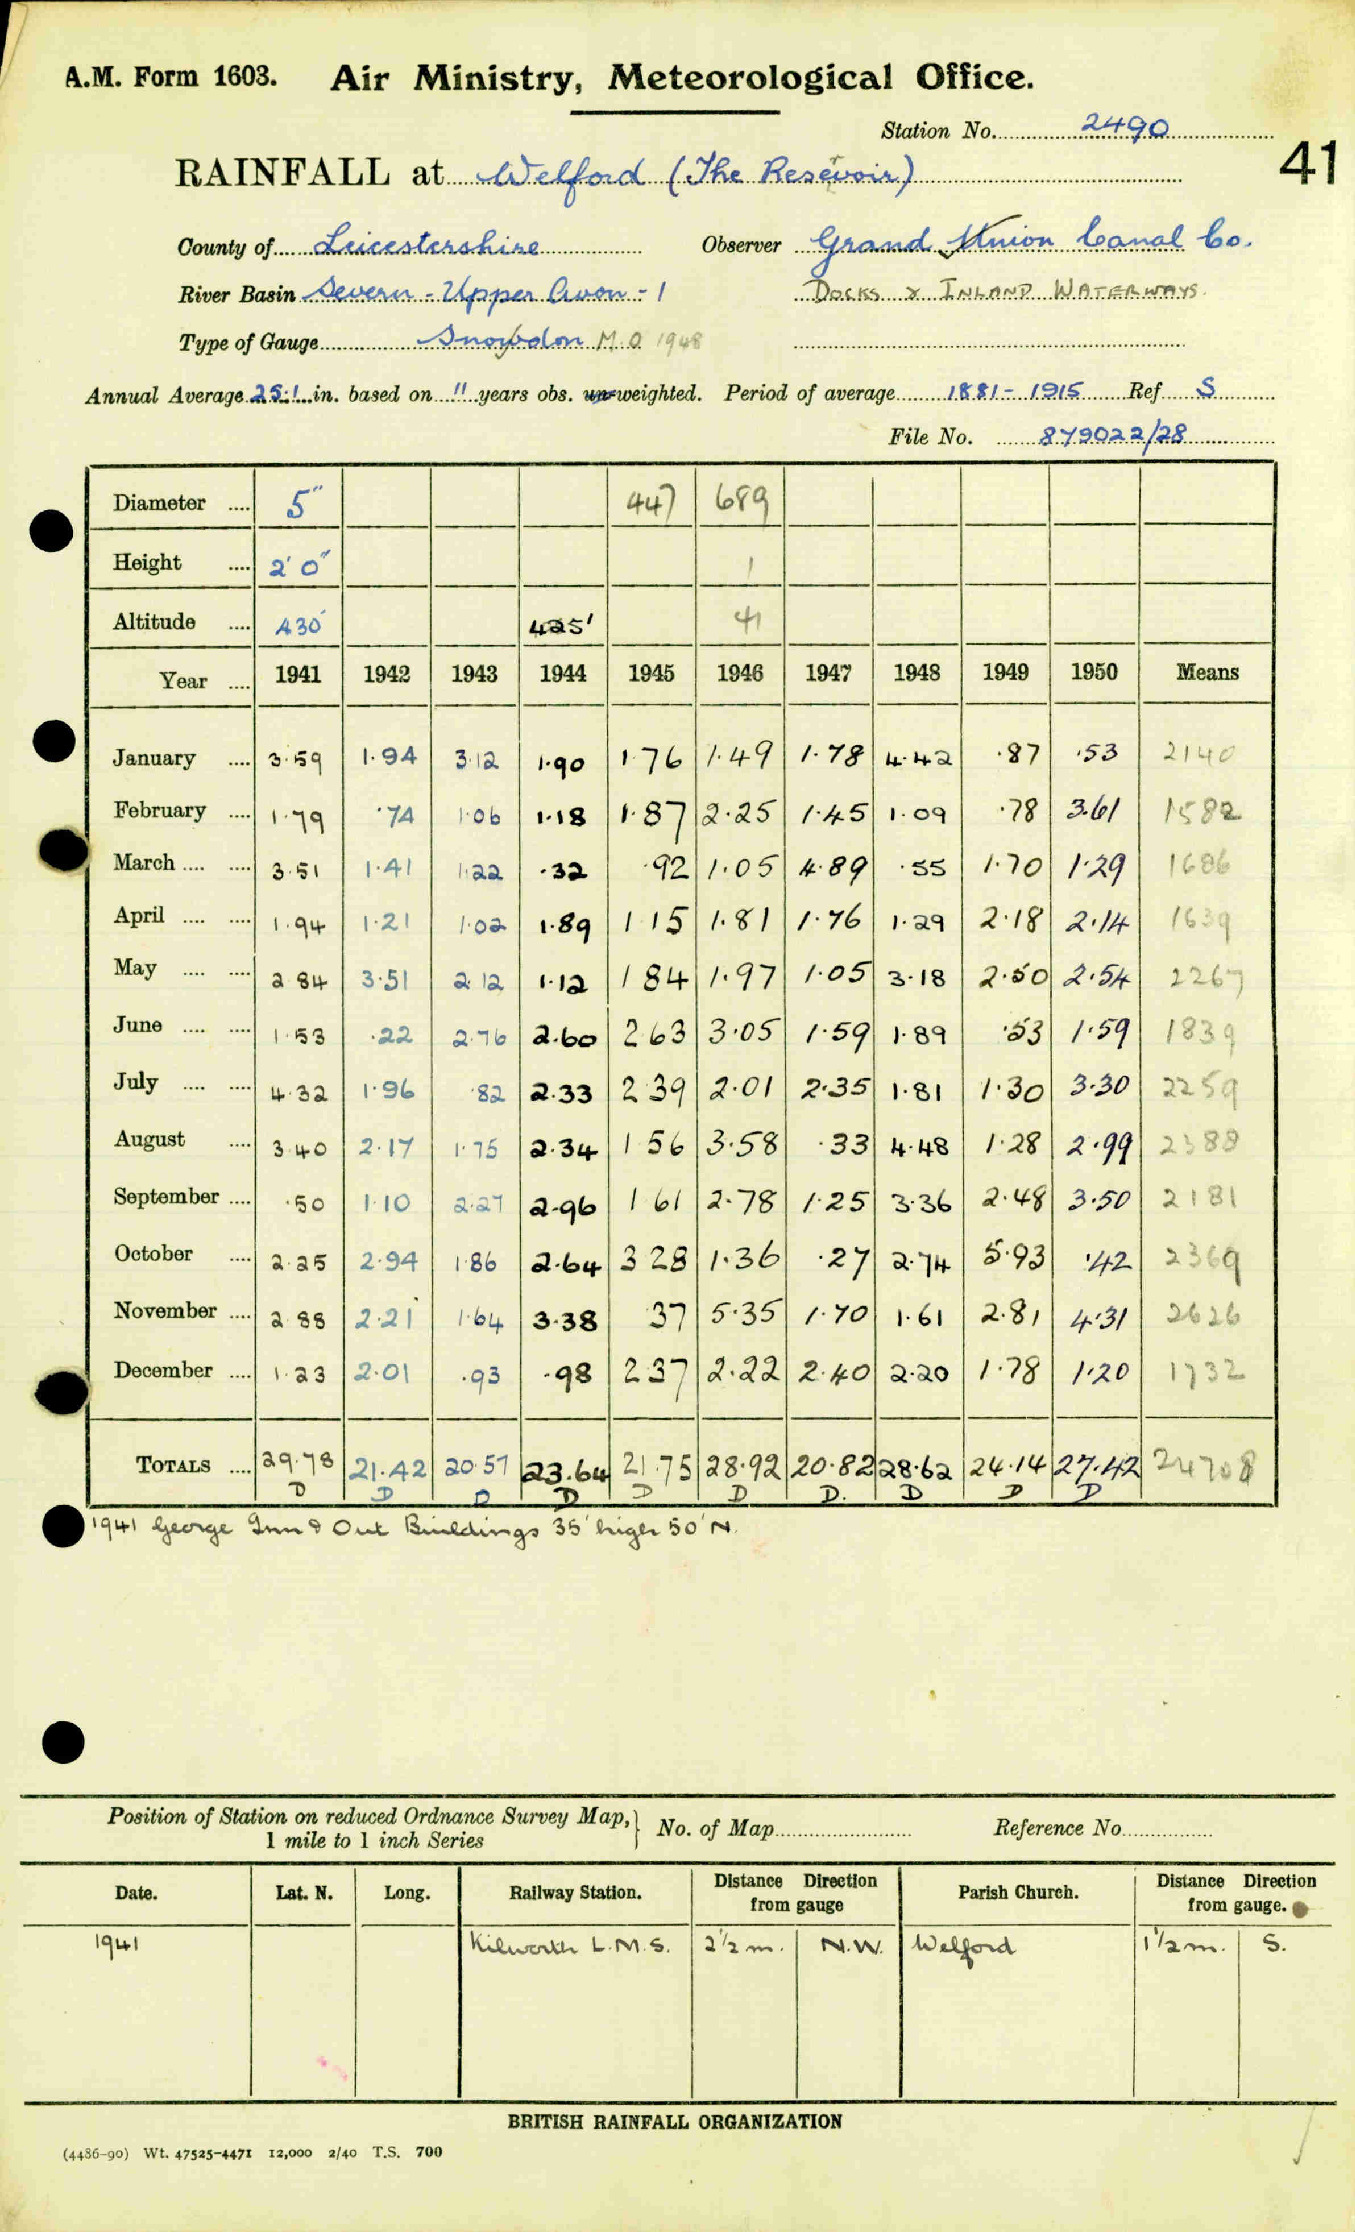 A.M. Form 1603. Air Ministry, Meteorological Office.
Station No. 2490
41
RAINFALL at Welford (The Resevoir)
County of Leicestershire Observer Grand Union Canal Co.
River Basin Severn - Upper Avon - 1 Docks & Inland Waterways
Type of Gauge Snowdon M.O 1948
Annual Average 25.1 in. based on " years obs. un-weighted. Period of average 1881 - 1915 Ref S
File No. 879022/28
Diameter .... 5" 447 689
Height .... 2' 0" 1
Altitude .... 430' 425' 41
Year .... 1941 1942 1943 1944 1945 1946 1947 1948 1949 1950 Means
January .... 3.59 1.94 3.12 1.90 1.76 1.49 1.78 4.42 .87 .53 2140
February .... 1.79 .74 1.06 1.18 1.87 2.25 1.45 1.09 .78 3.61 1582
March .... .... 3.51 1.41 1.22 .32 .92 1.05 4.89 .55 1.70 1.29 1686
April .... .... 1.94 1.21 1.02 1.89 1 15 1.81 1.76 1.29 2.18 2.14 1639
May .... .... 2 84 3.51 2.12 1.12 1 84 1.97 1.05 3.18 2.50 2.54 2267
June .... .... 1.53 .22 2.76 2.60 2 63 3.05 1.59 1.89 .53 1.59 1839
July .... .... 4.32 1.96 .82 2.33 2 39 2.01 2.35 1.81 1.30 3.30 2259
August .... 3.40 2.17 1.75 2.34 1 56 3.58 .33 4.48 1.28 2.99 2388
September .... .50 1.10 2.27 2.96 1 61 2.78 1.25 3.36 2.48 3.50 2181
October .... 2.25 2.94 1.86 2.64 3 28 1.36 .27 2.74 5.93 .42 2369
November .... 2.88 2.21 1.64 3.38 37 5.35 1.70 1.61 2.81 4.31 2626
December .... 1.23 2.01 .93 .98 2.37 2.22 2.40 2.20 1.78 1.20 1732
TOTALS .... 29.78 21.42 20.57 23.64 21.75 28.92 20.82 28.62 24.14 27.42 24708
D D D D D D D. D D D
1941 George Inn & Out Buildings 35' higer 50' N.
Position of Station on reduced Ordnance Survey Map, } No. of Map Reference No.
1 mile to 1 inch Series
Date. Lat. N. Long. Railway Station. Distance Direction from gauge Parish Church. Distance Direction from gauge.
1941 Kilworth L.M.S. 2½ m. N.W. Welford 1½ m. S.
BRITISH RAINFALL ORGANIZATION
(4486-90) Wt. 47525-4471 12,000 2/40 T.S. 700